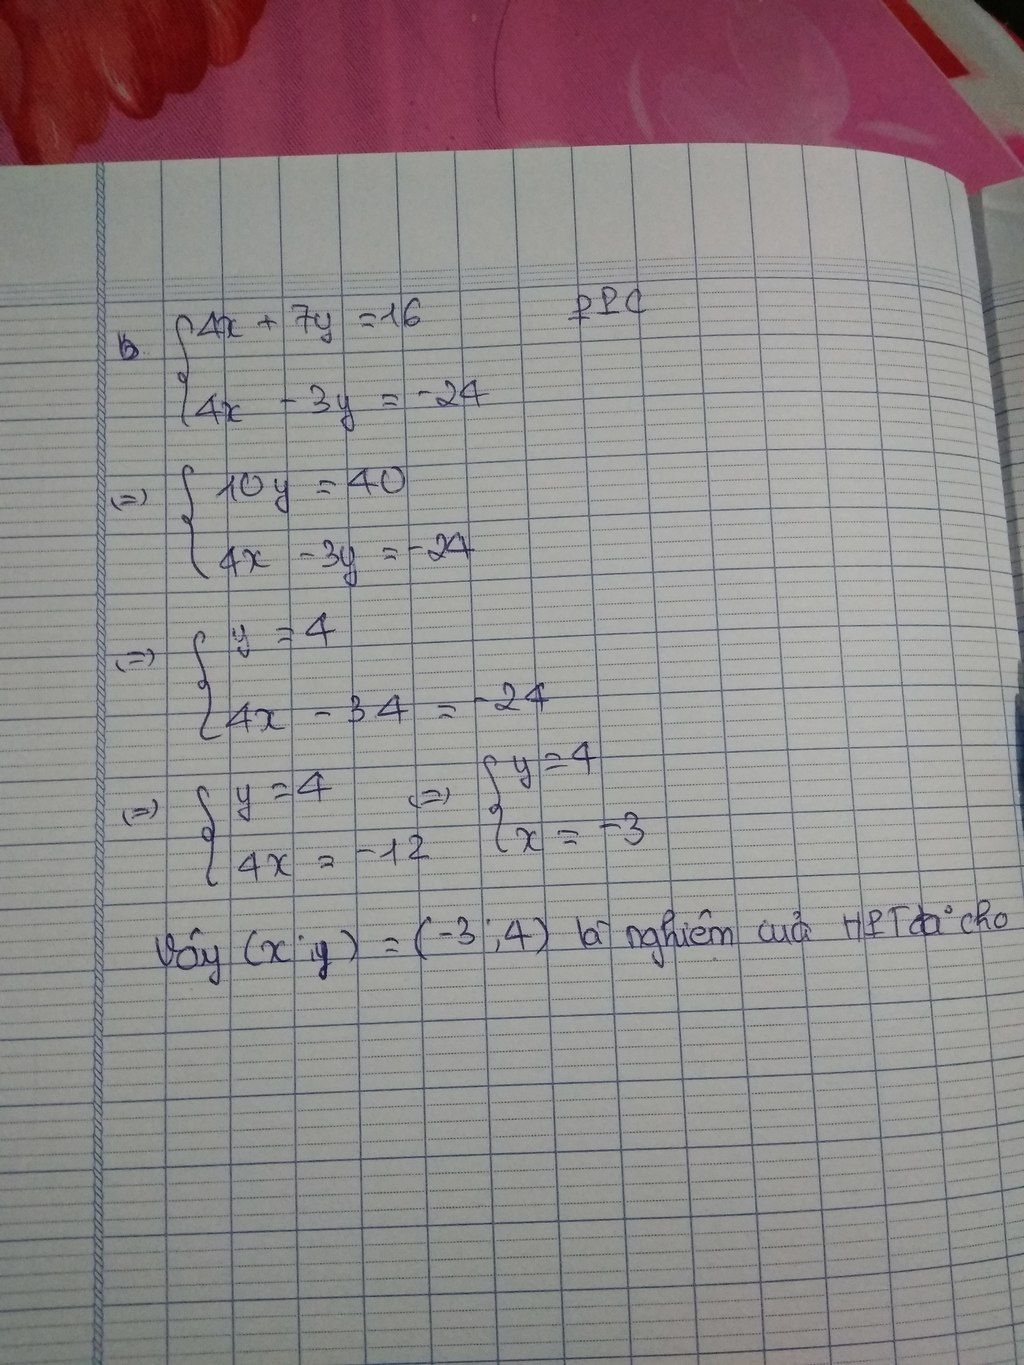 b. 4x + 7y = 16 PPC
4x - 3y = -24
(=) 10y = 40
4x - 3y = -24
(=) y = 4
4x - 34 = -24
(=) y = 4 (=) y = 4
4x = -12 x = -3
Vậy (x;y) = (-3;4) là nghiệm cuả HPT đã cho